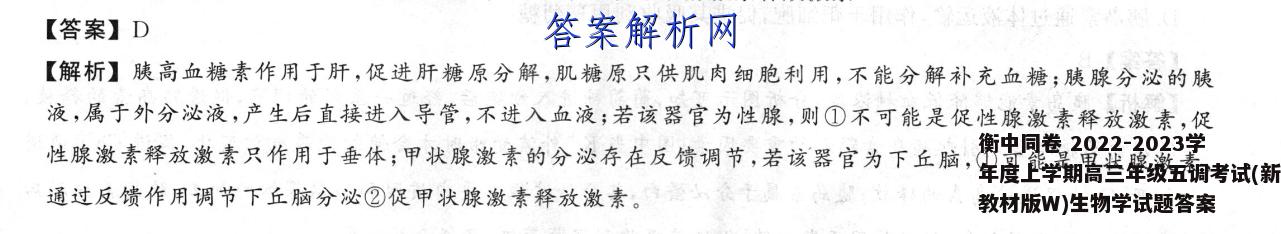 【答案】D
答案解析网
【解析】胰高血糖素作用于肝,促进肝糖原分解,肌糖原只供肌肉细胞利用,不能分解补充血糖;胰腺分泌的胰
液,属于外分泌液,产生后直接进入导管,不进入血液;若该器官为性腺,则①不可能是促性腺激素释放激素,促
性腺激素释放激素只作用于垂体;甲状腺激素的分泌存在反馈调节,若该器官为下丘脑,①可能是甲状腺激素
通过反馈作用调节下丘脑分泌②促甲状腺激素释放激素。
衡中同卷 2022-2023学
年度上学期高三年级五调考试(新
教材版W)生物学试题答案